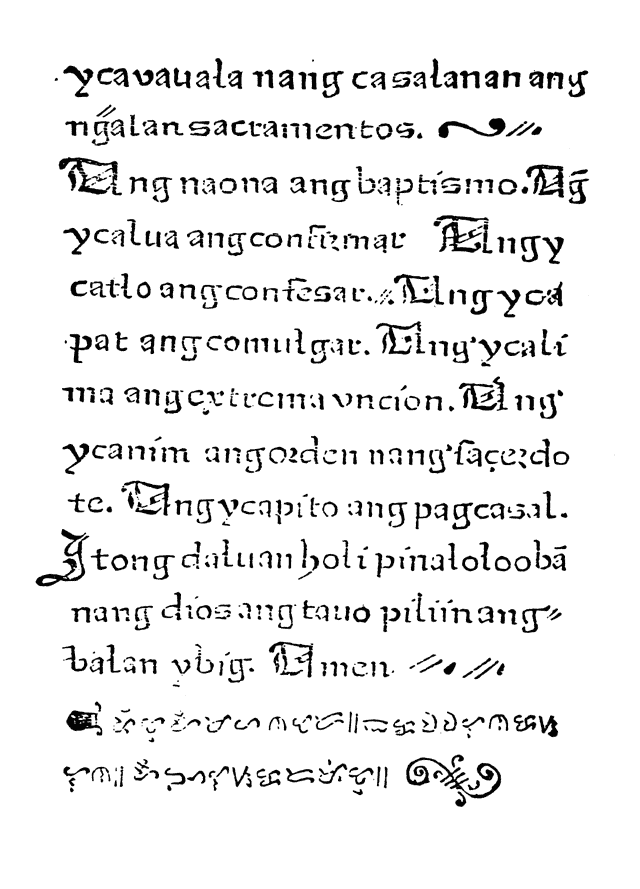 ycavauala nang casalanan ang
ng̃alan sacramentos.
Ang naona ang baptismo. Ag̃
ycalua ang confirmar Ang y
catlo ang confesar. Ang yca
pat ang comulgar. Ang ycali
ma ang extrema vncion. Ang
ycanim ang orden nang sacerdo
te. Ang ycapito ang pagcasal.
Itong daluan holi pinaloloobã
nang dios ang tauo piliin ang
balan ybig. Amen